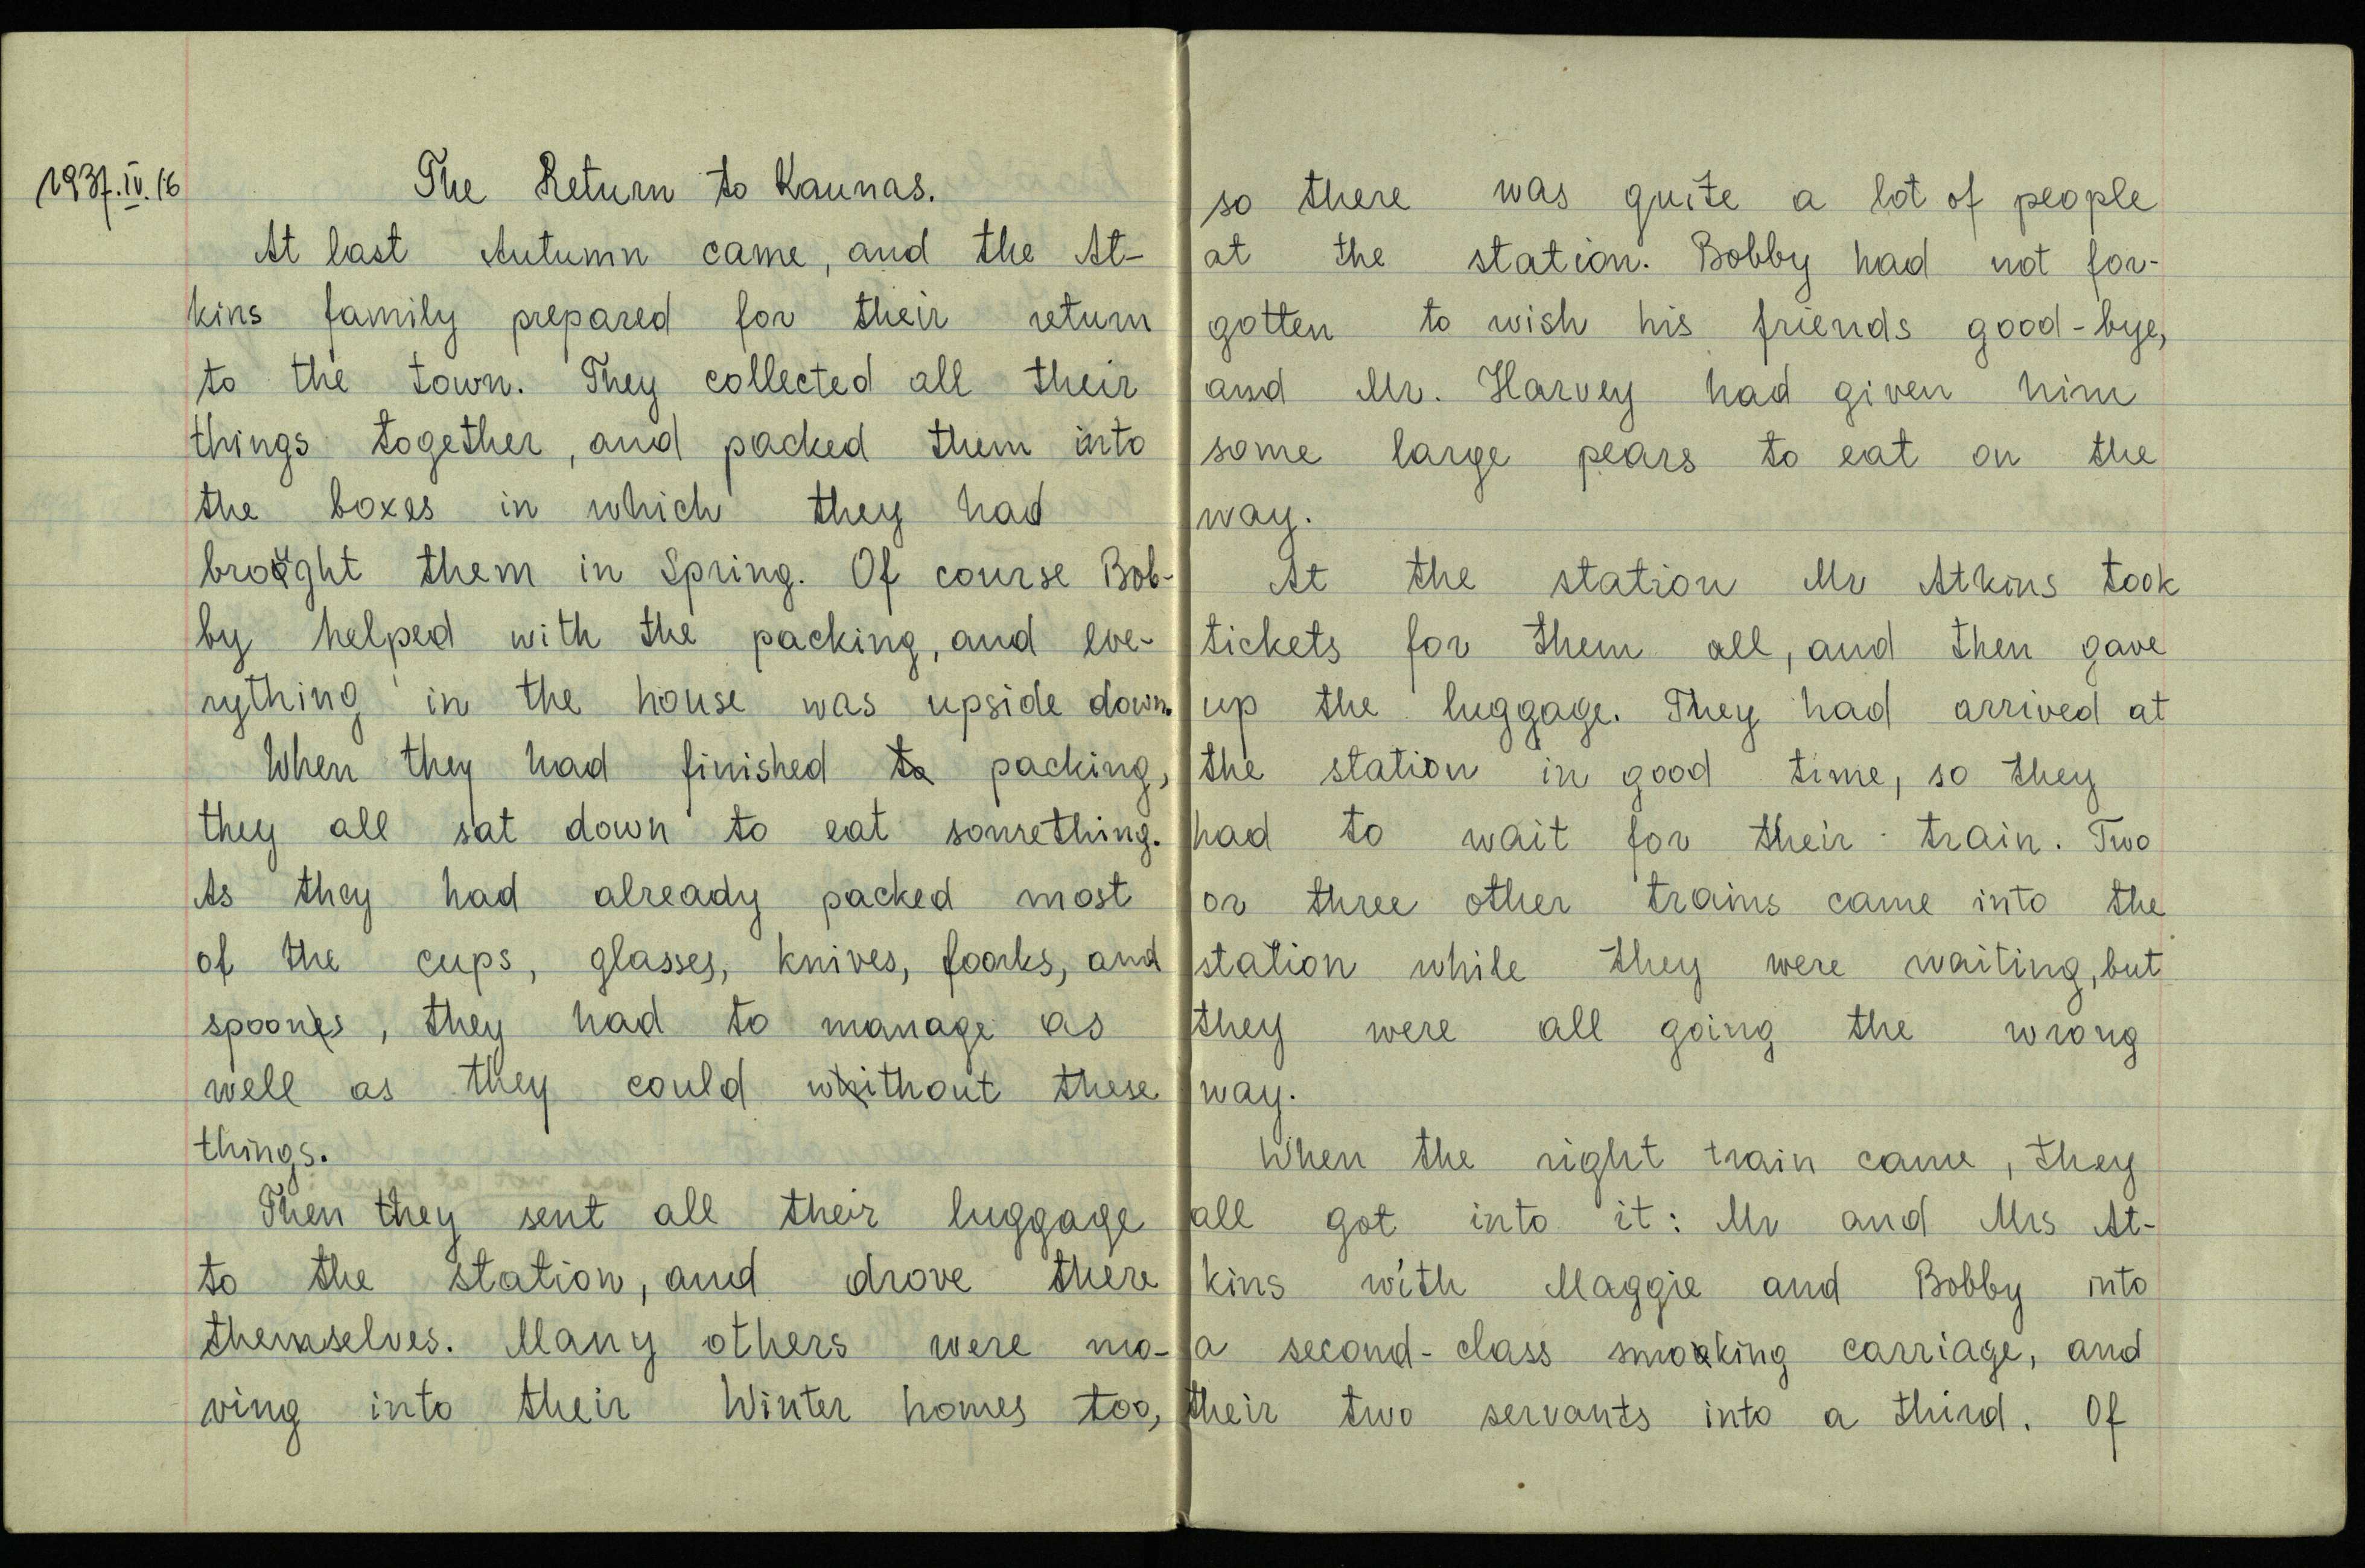 1937.IV.16
The Return to Kaunas.
At last Autumn came, and the At-
kins family prepared for their return
to the town. They collected all their
things together, and packed them into
the boxes in which they had
brought them in Spring. Of course Bob-
by helped with the packing, and eve-
rything in the house was upside down.
When they had finished to packing,
they all sat down to eat something.
As they had already packed most
of the cups, glasses, knives, foorks, and
spoons, they had to manage as
well as they could without these
things.
Then they sent all their luggage
to the station, and drove there
themselves. Many others were mo-
ving into their Winter homes too,
so there was quite a lot of people
at the station. Bobby had not for-
gotten to wish his friends good-bye,
and Mr. Harvey had given him
some large pears to eat on the
way.
At the station Mr Atkins took
tickets for them all, and then gave
up the luggage. They had arrived at
the station in good time, so they
had to wait for their train. Two
or three other trains came into the
station while they were waiting, but
they were all going the wrong
way.
When the right train came, they
all got into it: Mr and Mrs At-
kins with Maggie and Bobby into
a second-class smoking carriage, and
their two servants into a third. Of